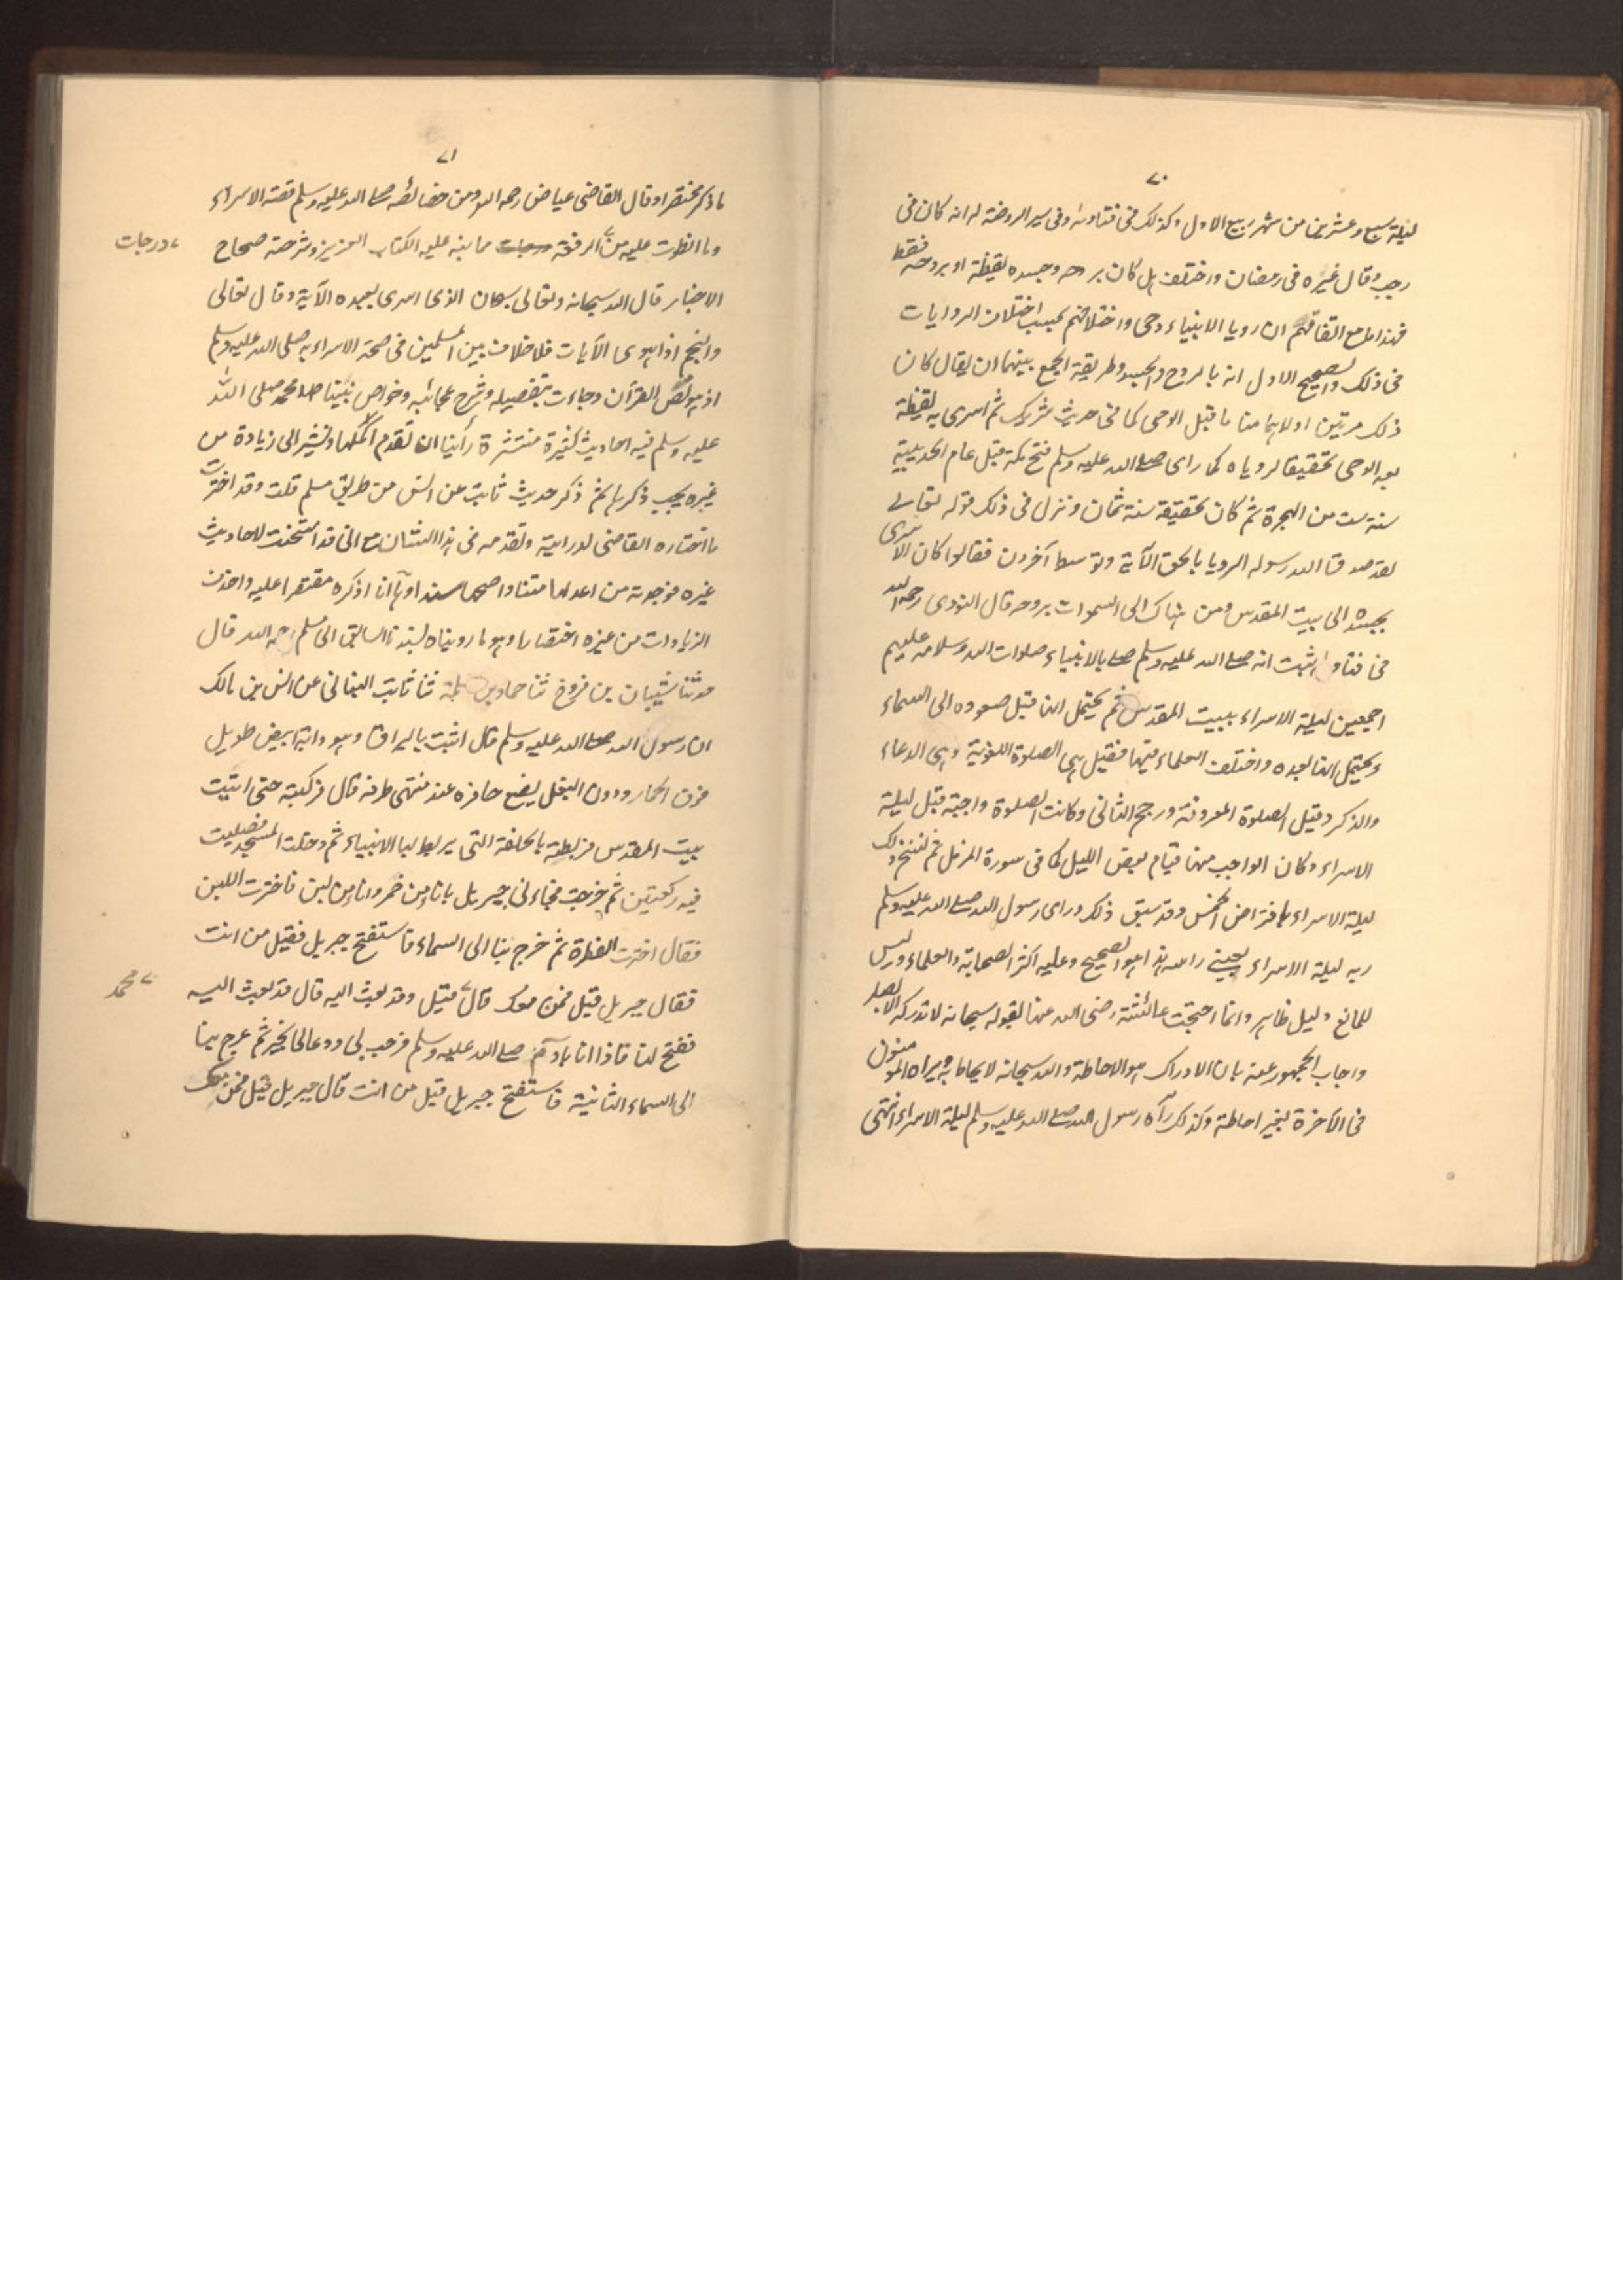 ٧٠
ليلة سبع وعشرين من شهر ربيع الاول وكذلك فى فتاويه وفى سير الروضة له انه كان فى
رجب وقال غيره فى رمضان واختلف هل كان بروحه وجسده يقظة او بروحه فقط
فهذا مع اتفاقهم ان رويا الانبياء وحى واختلافهم بحسب اختلاف الروايات
فى ذلك والصحيح الاول انه بالروح والجسد وطريقة الجمع بينهما ان يقال كان
ذلك مرتين اولاهما مناما قبل الوحى كما فى حديث شريك ثم اسرى به يقظة
بعد الوحى تحقيقا لروياه كما راى صلى الله عليه وسلم فتح مكة قبل عام الحديبية
سنة ست من الهجرة ثم كان تحقيقه سنة ثمان ونزل فى ذلك قوله تعالى
لقد صدق الله رسوله الرويا بالحق الآية وتوسط آخرون فقالوا كان الاسرى
بجسده الى بيت المقدس ومن هناك الى السموات بروحه قال النووى رحمه الله
فى فتاواه ثبت انه صلى الله عليه وسلم صلى بالانبياء صلوات الله وسلامه عليهم
اجمعين ليلة الاسراء ببيت المقدس ثم يحتمل انها قبل صعوده الى السماء
ويحتمل انها بعده واختلف العلماء فيها فقيل هى الصلوة اللغوية وهى الدعاء
والذكر وقيل الصلوة المعروفة ورجح الثانى وكانت الصلوة واجبة قبل ليلة
الاسراء وكان الواجب منها قيام بعض الليل كما فى سورة المزمل ثم نسخ ذلك
ليلة الاسراء بافتراض الخمس وقد سبق ذلك وراى رسول الله صلى الله عليه وسلم
ربه ليلة الاسراء بعينى راسه هذا هو الصحيح وعليه اكثر الصحابة والعلماء وليس
للمانع دليل ظاهر وانما احتجت عائشة رضى الله عنها بقوله سبحانه لا تدركه الابصار
واجاب الجمهور عنه بان الادراك هو الاحاطة والله سبحانه لا يحاط به ويراه المومنون
فى الآخرة بغير احاطة وكذلك رآه رسول الله صلى الله عليه وسلم ليلة الاسراء انتهى
٧١
ما ذكر مختصرا وقال القاضى عياض رحمه الله ومن خصائصه صلى الله عليه وسلم قصة الاسراء
وما انطوت عليه من الرفعة مما نبه عليه الكتاب العزيز وشرحته صحاح
درجات
الاخبار قال الله سبحانه وتعالى سبحان الذى اسرى بعبده الآية وقال تعالى
والنجم اذا هوى الآيات فلا خلاف بين المسلمين فى صحة الاسراء به صلى الله عليه وسلم
اذ هو نص القرآن وجاءت بتفصيله وشرح عجائبه وخواص نبينا محمد صلى الله
عليه وسلم فيه احاديث كثيرة منتشرة رأينا ان نقدم اكملها ونشير الى زيادة من
غيره يجب ذكرها ثم ذكر حديث ثابت عن انس من طريق مسلم قلت وقد اخترت
ما اختاره القاضى لدرايته وتقدمه فى هذا الشان مع انى قد استخنت الاحاديث
غيره فوجدته من اعدلها متنا واصحها سندا وها انا اذكره مقتصرا عليه واحذف
الزيادات من غيره اختصارا وهو ما رويناه بسندنا السابق الى مسلم رحمه الله قال
حدثنا شيبان بن فروخ ثنا حماد بن سلمة ثنا ثابت البنانى عن انس بن مالك
ان رسول الله صلى الله عليه وسلم قال اتيت بالبراق وهو دابة ابيض طويل
فوق الحمار ودون البغل يضع حافره عند منتهى طرفه قال فركبته حتى اتيت
بيت المقدس فربطته بالحلقة التى يربط بها الانبياء ثم دخلت المسجد فصليت
فيه ركعتين ثم خرجت فجاءنى جبريل باناء من خمر واناء من لبن فاخترت اللبن
فقال اخترت الفطرة ثم خرج بنا الى السماء فاستفتح جبريل فقيل من انت
فقال جبريل قيل فمن معك قال قيل وقد بعث اليه قال قد بعث اليه
محمد
ففتح لنا فاذا انا بآدم صلى الله عليه وسلم فرحب بى ودعا لى بخير ثم عرج بنا
الى السماء الثانية فاستفتح جبريل قيل من انت قال جبريل قيل فمن معك